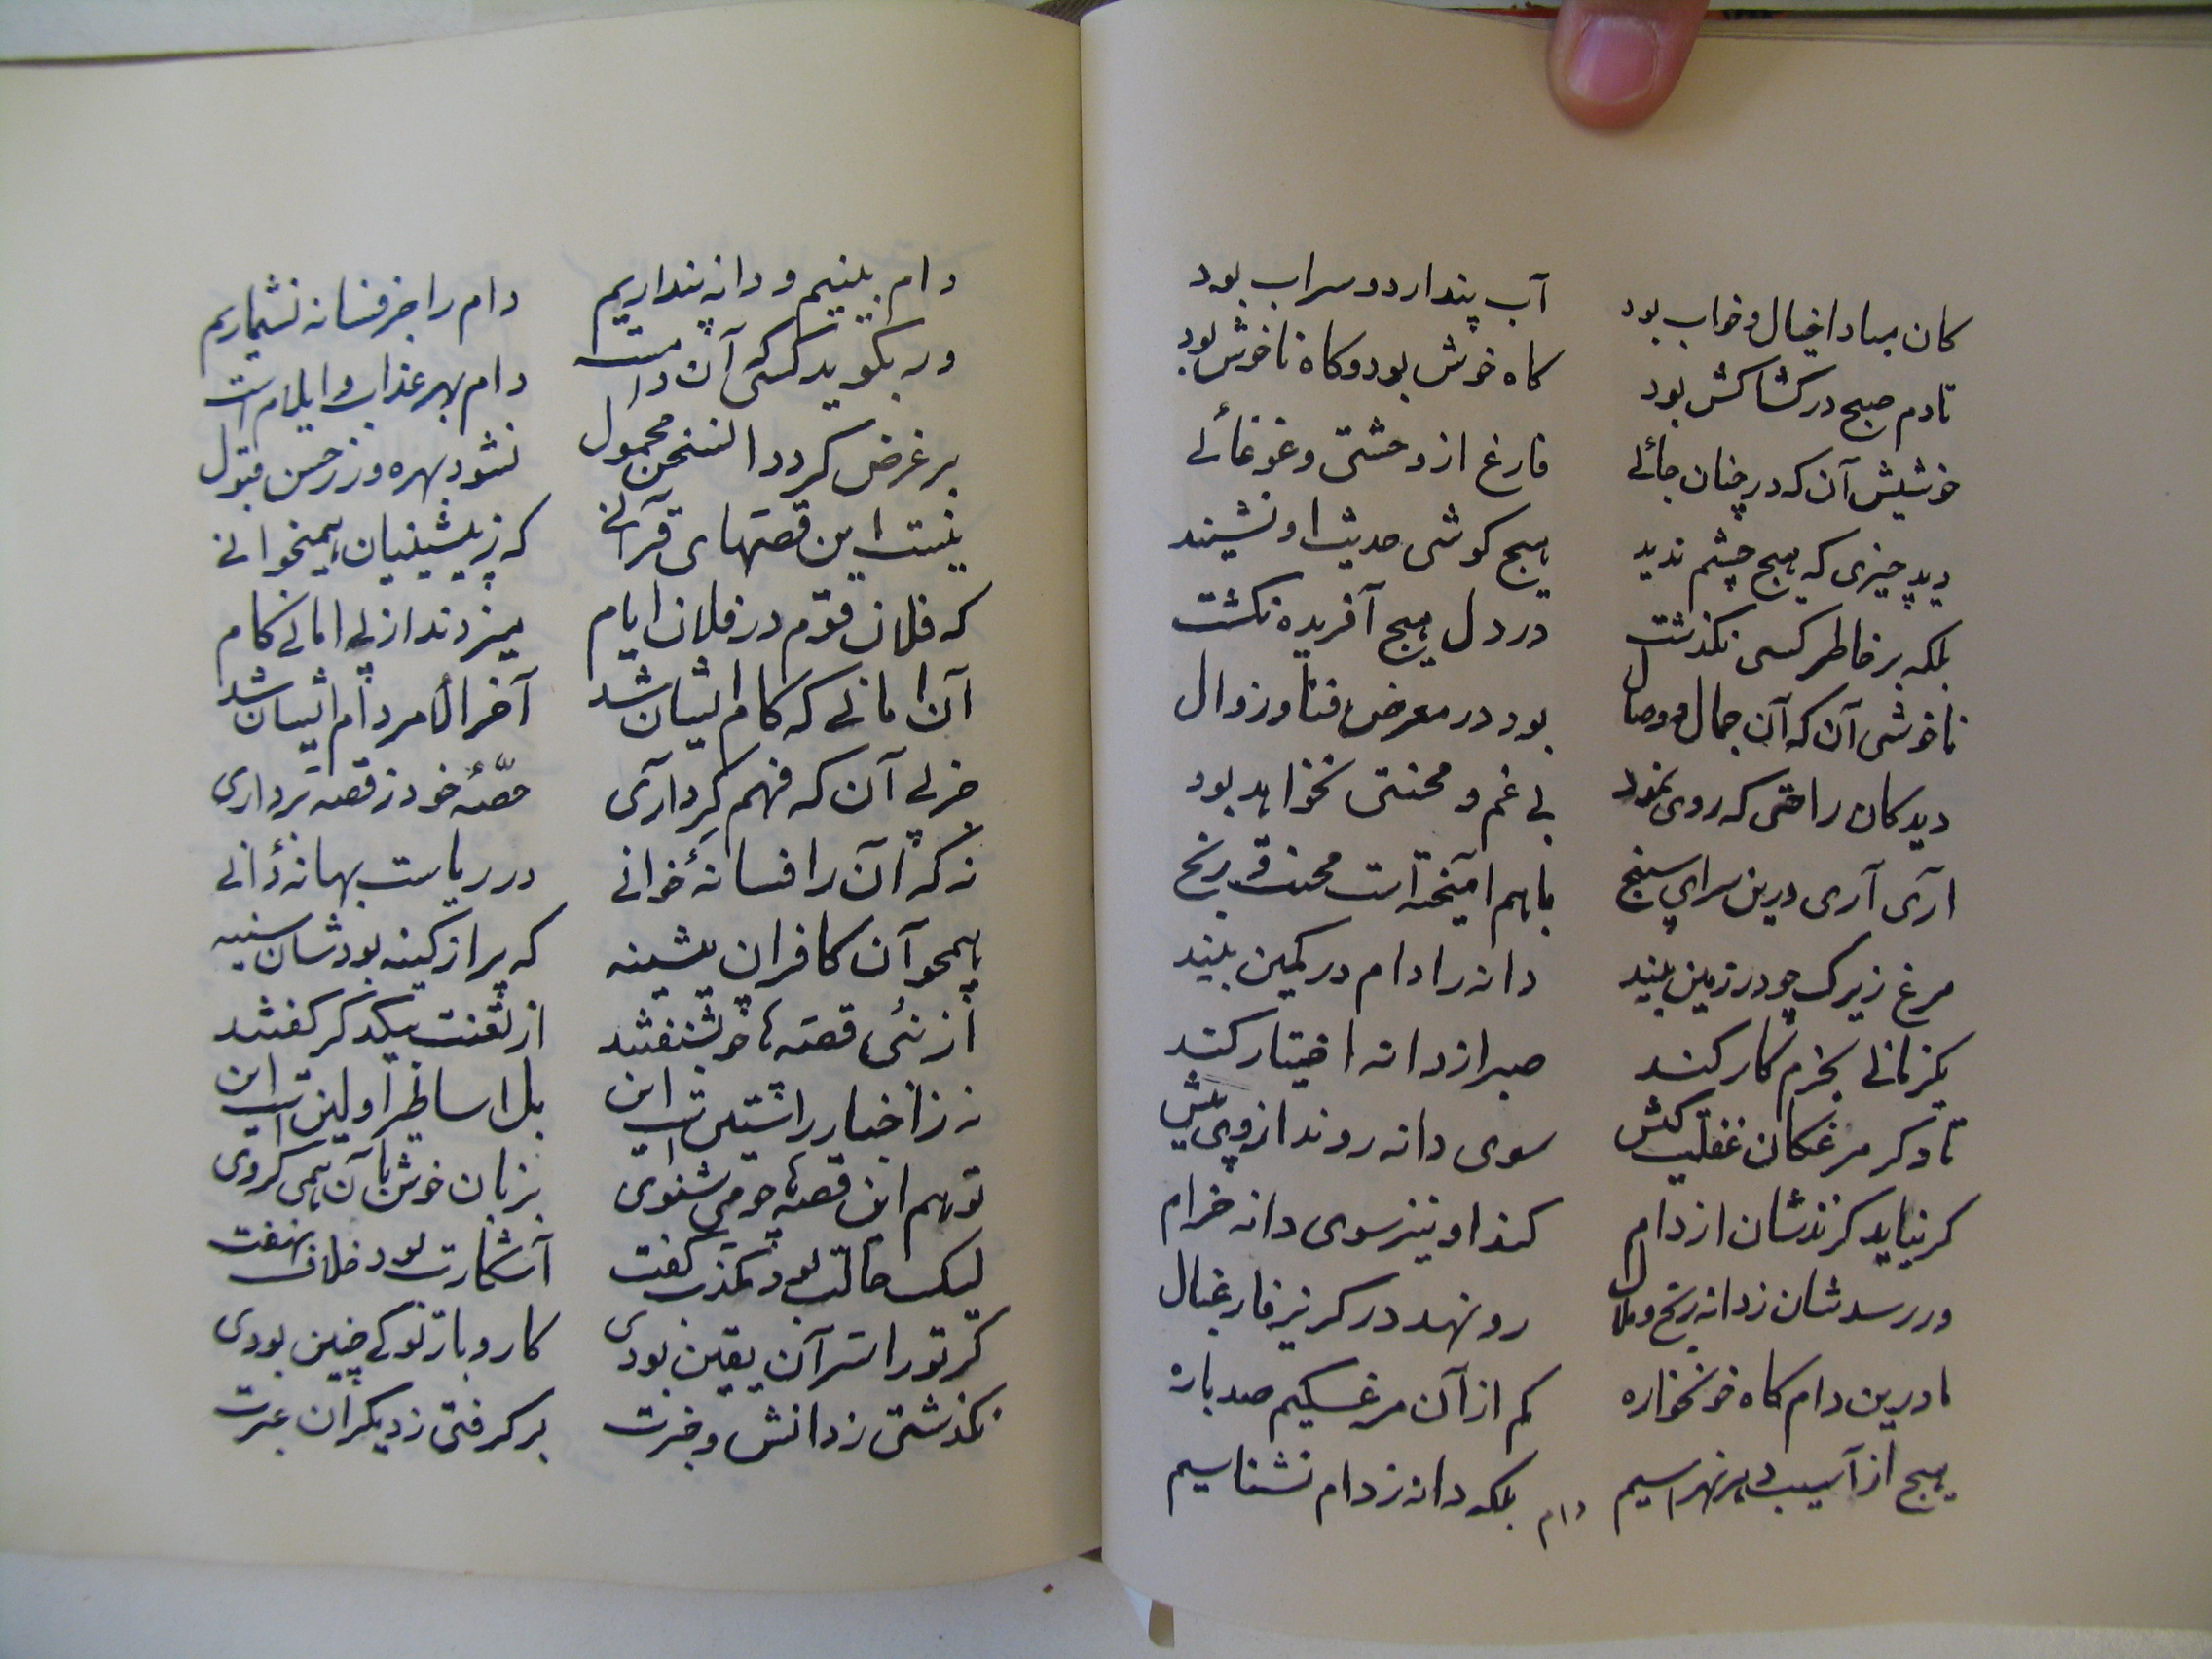 کان مبادا خیال و خواب بود آب پندارد و سراب بود
تادم صبح در کشاکش بود کاه خوش بود و کاه ناخوش بود
خوشیش آن که در چنان جائے فارغ از وحشتی و غوغائے
دید چیزی که هیچ چشم ندید هیچ کوشی حدیث او نشیند
بلکه بر خاطر کسی نکذشت در دل هیچ آفریده نکشت
ناخوشی آن که آن جمال و وصال بود در معرض فنا و زوال
دید کان راحتی که روی نمود بی غم و محنتی نخواهد بود
آری آری درین سرای سپنج باهم آمیخته است محنت و رنج
مرغ زیرک چو در زمین بیند دانه را دام در کمین بیند
یکزمانی بخرم کار کند صبر از دانه اختیار کند
تا دکر مرغکان غفلت کش سوی دانه روند از وی پیش
کر نیاید کزندشان از دام کند او نیز سوی دانه خرام
ور رسدشان ز دانه رنج و ملال رو نهد در کریز فارغبال
ما درین دام کاه خونخواره کم از آن مرغکیم صد باره
هیچ از آسیب دهر نهراسیم بلکه دانه ز دام نشناسیم
دام
دام بینیم و دانه پنداریم دام را جز فسانه نشماریم
ور بکوید کسی که آن دامست دام بهر عذاب و ایلام است
بر غرض کردد آن سخن محمول نشود بهره ور ز حسن قبول
نیست این قصهای قرآنی که ز پیشینیان همیخوانی
که فلان قوم در فلان ایام میزدند از پی امانی کام
آن امانی که کام ایشان شد آخر الأمر دام ایشان شد
جز پی آن که فهم کرد آری حصّهٔ خود ز قصه برداری
نه که آن را فسانهٔ خوانی در ریاست بهانهٔ دانی
همچو آن کافران پیشینه که پر از کینه بودشان سینه
از نبی قصه ها چو بشنفتند از تعنت بیکدکر کفتند
نه ز اخبار راستین است این بل اساطیر اولین است این
تو هم این قصها چو می شنوی بزبان خوش بآن همی کروی
لیک حالت بود مکذب کفت آشکارت بود خلاف نهفت
کر تو را سرّ آن یقین بودی کار و بار تو کی چنین بودی
نکذشتی ز دانش و خبرت بر کرفتی ز دیکران عبرت